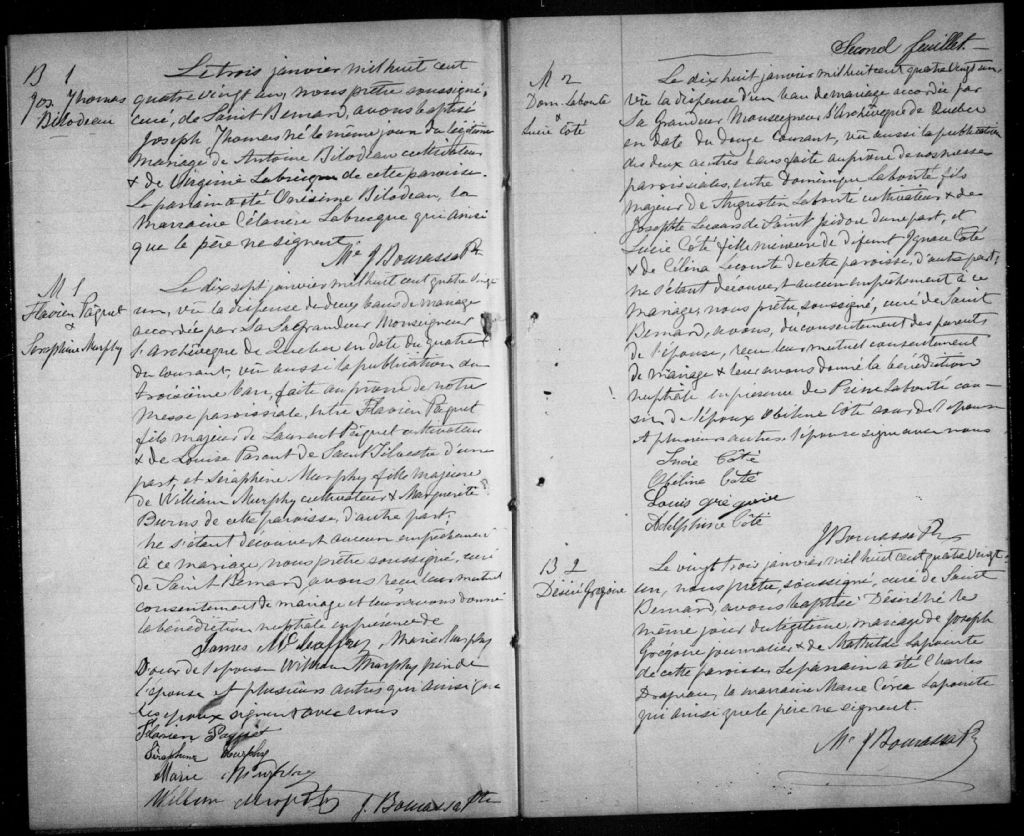 B 1
Jos. Thomas
Bilodeau
Le trois janvier mil huit cent
quatre vingt un, nous prêtre soussigné,
curé, de Saint Bernard, avons baptisé
Joseph Thomas né le même jour du légitime
mariage de Antoine Bilodeau cultivateur
& de Virginie Labrecque de cette paroisse.
Le parrain a été Onésime Bilodeau, la
marraine Célanire Labrecque qui ainsi
que le père ne signent.
J Bourassa Ptr
M 1
Flavien Paquet
&
Séraphine Murphy
Le dix sept janvier mil huit cent quatre vingt
un, vu la dispense de deux bans de mariage
accordée par Sa Grandeur Monseigneur
l'Archevêque de Quebec en date du quatre
du courant, vu aussi la publication du
troisième ban, faite au prône de notre
messe paroissiale, entre Flavien Paquet
fils majeur de Laurent Paquet cultivateur
& de Louise Parent de Saint Silvestre d'une
part, et Séraphine Murphy fille majeure
de William Murphy cultivateur & Marguerite
Burns de cette paroisse, d'autre part;
ne s'étant découvert aucun empêchement
à ce mariage, nous prêtre soussigné, curé
de Saint Bernard, avons reçu leur mutuel
consentement de mariage et leur avons donné
la bénédiction nuptiale en présence de
James, Marie Murphy
Soeur de l'épouse William Murphy père de
l'épouse et plusieurs autres qui ainsi que
les époux signent avec nous
Flavien Paquet
Séraphine Murphy
Marie Murphy
William Murphy J. Bourassa Ptre
Second feuillet.
M 2
Dom. Labonté
&
Lucie Côté
Le dix huit janvier mil huit cent quatre vingt un,
vu la dispense d'un ban de mariage accordée par
Sa Grandeur Monseigneur l'Archevêque de Quebec
en date du douze courant, vu aussi la publication
des deux autres bans faite au prône de nos messes
paroissiales, entre Dominique Labonté fils
majeur de Augustin Labonté cultivateur & de
Josephte de Saint Isidore d'une part, et
Lucie Côté fille mineure de défunt Ignace Côté
& de Célina Lecomte de cette paroisse, d'autre part;
ne s'étant découvert aucun empêchement à ce
mariage, nous prêtre soussigné, curé de Saint
Bernard, avons, du consentement des parents
de l'épouse, reçu leur mutuel consentement
de mariage & leur avons donné la bénédiction
nuptiale en présence de Labonté cou-
sin de l'époux Côté soeur de l'épouse
et plusieurs autres. L'épouse signe avec nous
Lucie Côté
Côté
Louis Grégoire
Adelphine Côté
J Bourassa Ptr
B 2
Désiré Gregoire
Le vingt trois janvier mil huit cent quatre vingt
un, nous prêtre, soussigné, curé de Saint
Bernard, avons baptisé Désiré né le
même jour du légitime mariage de Joseph
Gregoire journalier & de Mathilde Lapointe
de cette paroisse. Le parrain a été Charles
Drapeau, la marraine Marie Lapointe
qui ainsi que le père ne signent.
J Bourassa Ptr